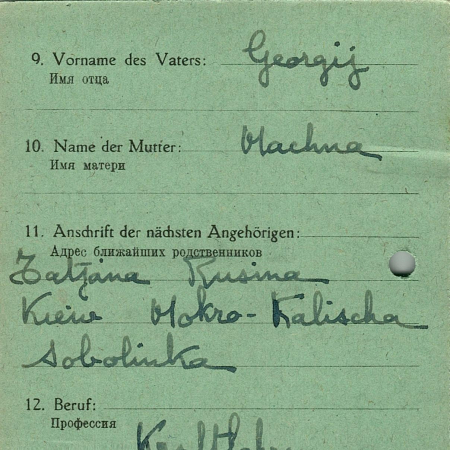 9. Vorname des Vaters: Georgij
Имя отца
10. Name der Mutter: Machna
Имя матери
11. Anschrift der nächsten Angehörigen:
Адрес ближайших родственников
Tatjana Rusina
Kiew Mokro-Kalischa
Sobolinka
12. Beruf:
Профессия